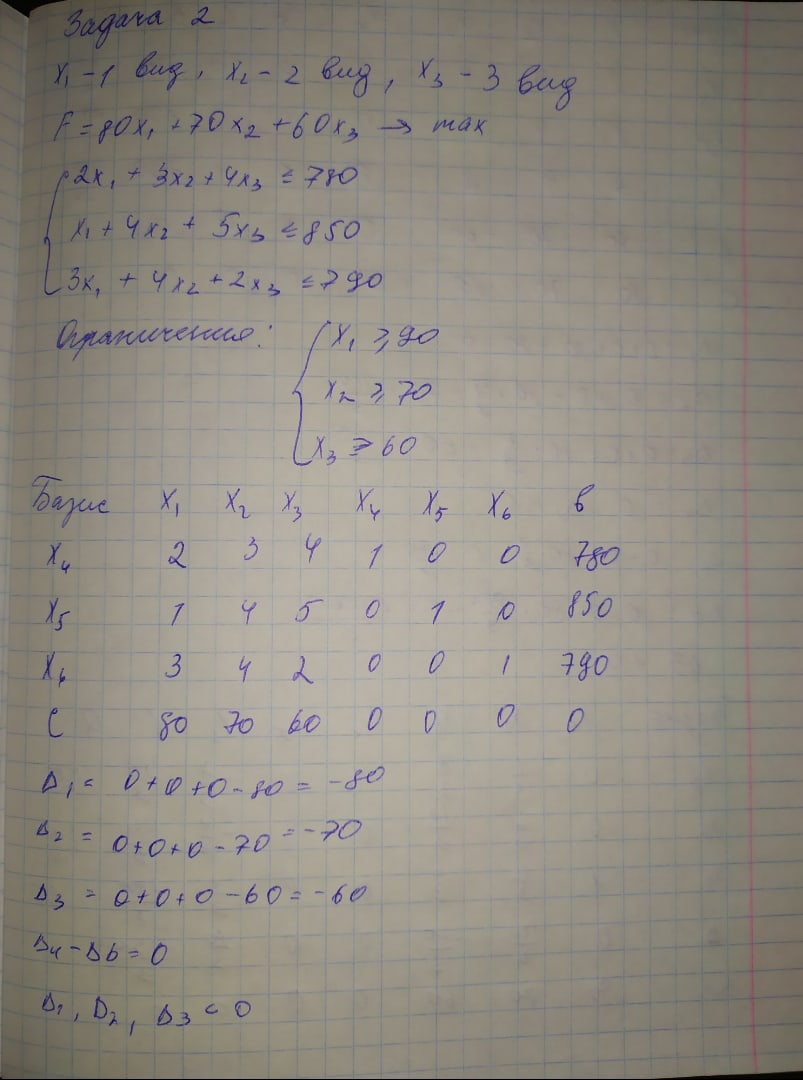 Задача 2
x₁ - 1 вид, x₂ - 2 вид, x₃ - 3 вид
F = 80x₁ + 70x₂ + 60x₃ → max
2x₁ + 3x₂ + 4x₃ ≤ 780
x₁ + 4x₂ + 5x₃ ≤ 850
3x₁ + 4x₂ + 2x₃ ≤ 790
Ограничения: x₁ ≥ 90
x₂ ≥ 70
x₃ ≥ 60
Базис x₁ x₂ x₃ x₄ x₅ x₆ в
x₄ 2 3 4 1 0 0 780
x₅ 1 4 5 0 1 0 850
x₆ 3 4 2 0 0 1 790
C 80 70 60 0 0 0 0
Δ₁ = 0+0+0-80 = -80
Δ₂ = 0+0+0-70 = -70
Δ₃ = 0+0+0-60 = -60
Δ₄ - Δ6 = 0
Δ₁, Δ₂, Δ₃ < 0